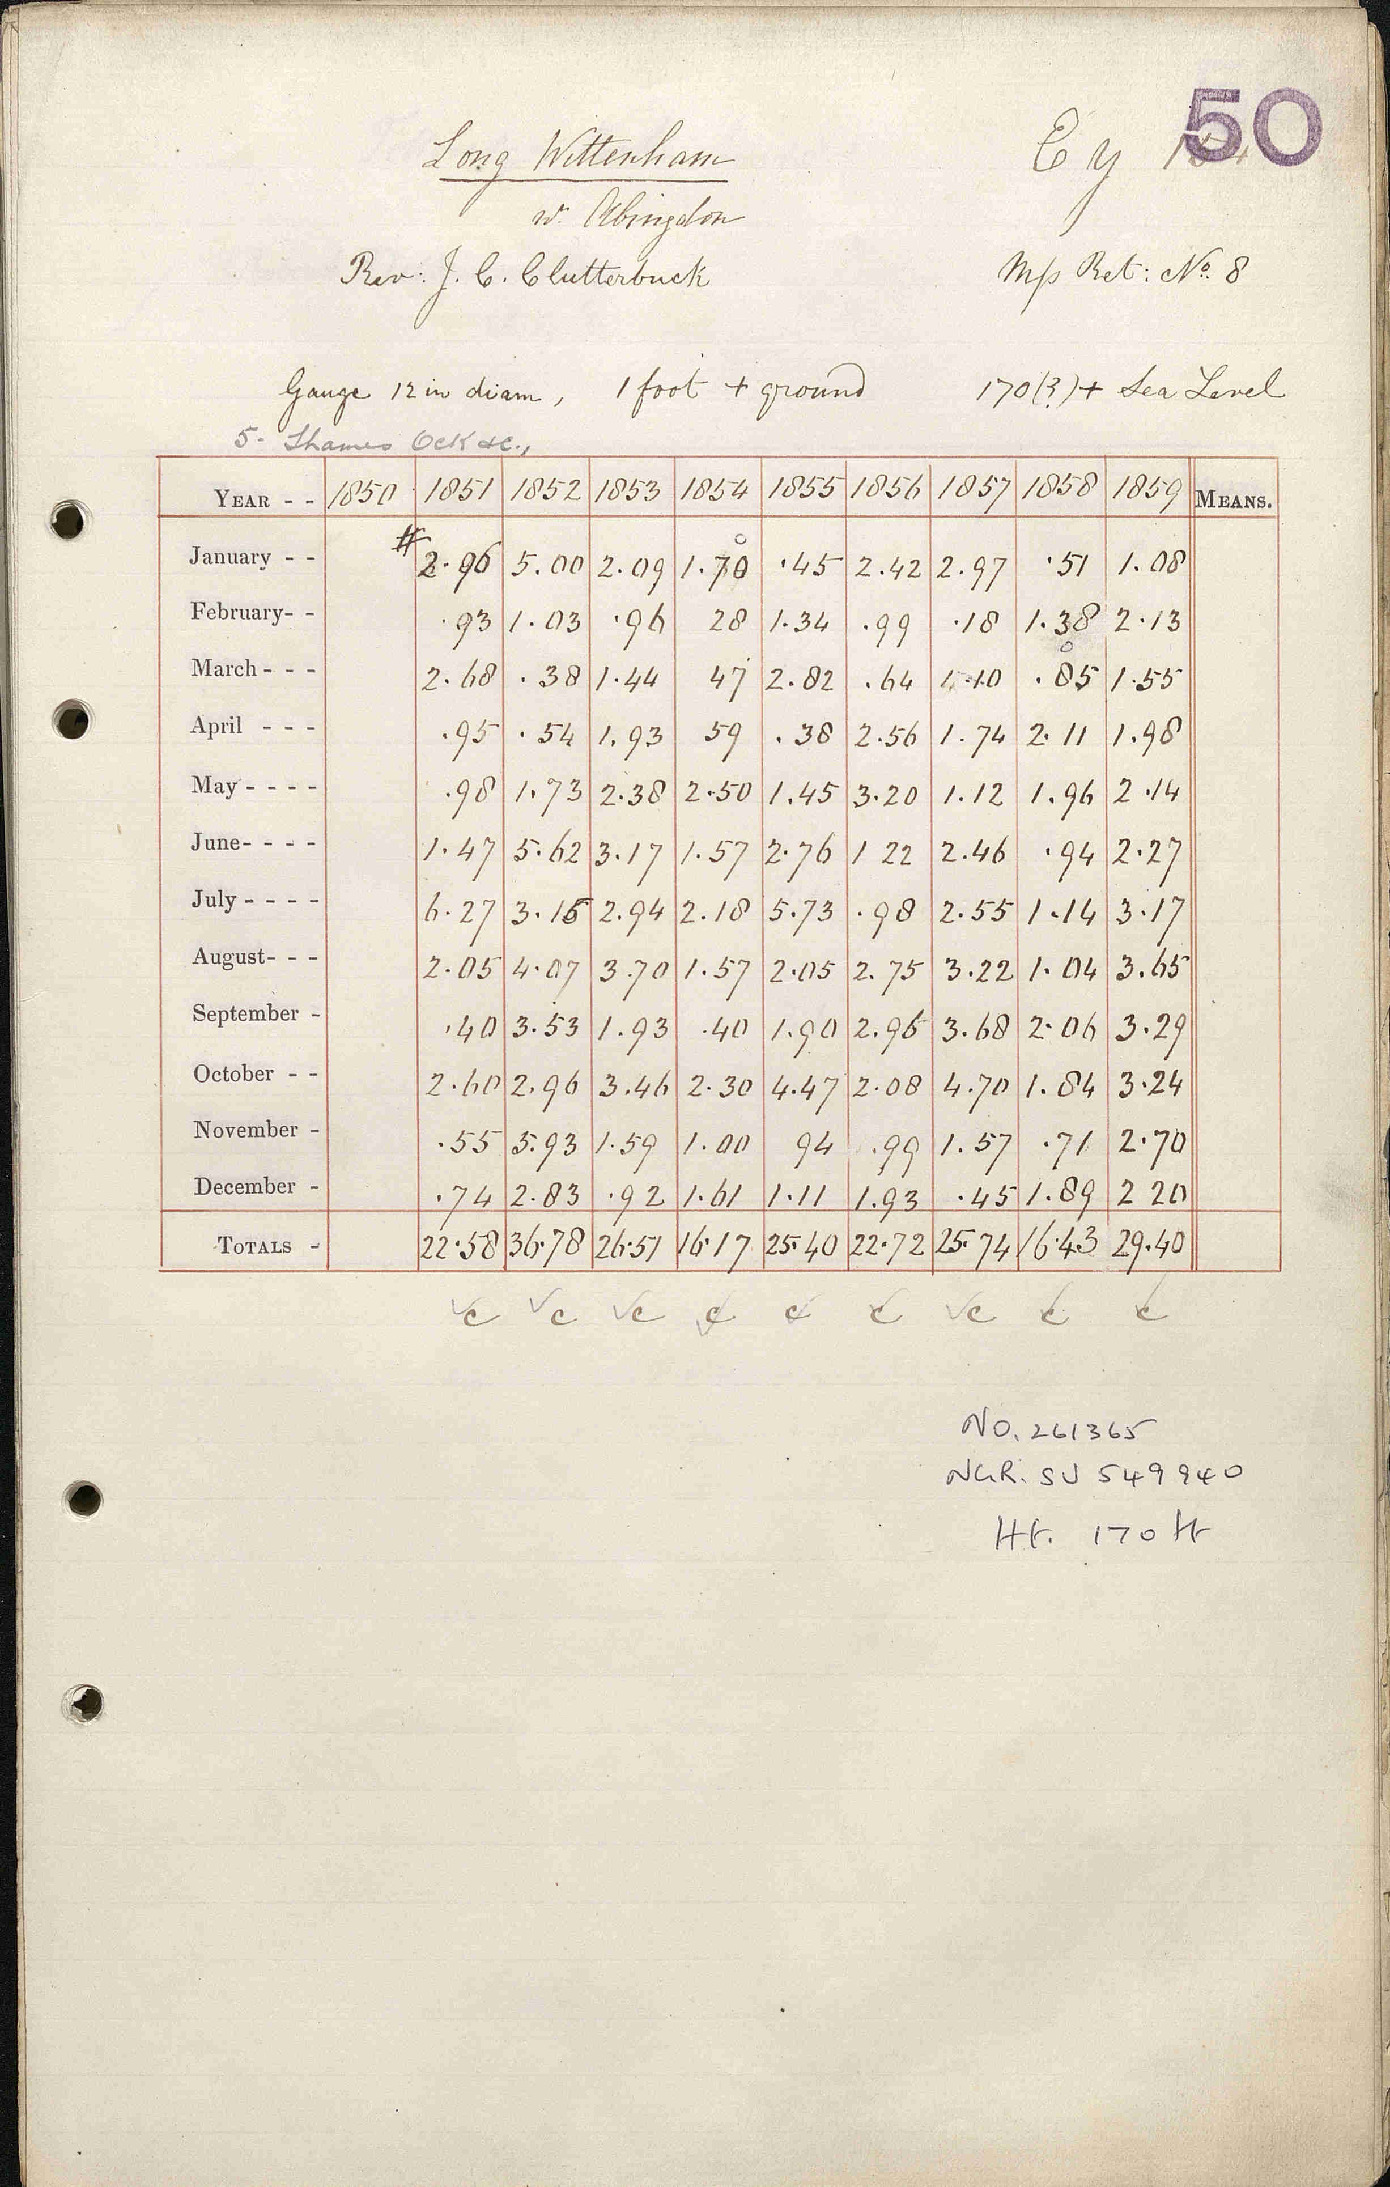 50
Long Wittenham
Ey
nr. Abingdon
Rev: J. C. Clutterbuck M/s Ret: No. 8
Gauge 12 in diam, 1 foot + ground 170(?)+ Sea Level
5. Thames Ock &c.,
YEAR - - 1850 1851 1852 1853 1854 1855 1856 1857 1858 1859 MEANS.
January - - # 2.96 5.00 2.09 1.70 .45 2.42 2.97 .51 1.08
February- - .93 1.03 .96 28 1.34 .99 .18 1.38 2.13
March - - - 2.68 .38 1.44 47 2.82 .64 1.10 .85 1.55
April - - - .95 .54 1.93 59 .38 2.56 1.74 2.11 1.98
May - - - - .98 1.73 2.38 2.50 1.45 3.20 1.12 1.96 2.14
June- - - - 1.47 5.62 3.17 1.57 2.76 1 22 2.46 .94 2.27
July - - - - 6.27 3.16 2.94 2.18 5.73 .98 2.55 1.14 3.17
August- - - 2.05 4.07 3.70 1.57 2.05 2.75 3.22 1.04 3.65
September - .40 3.53 1.93 .40 1.90 2.96 3.68 2.06 3.29
October - - 2.60 2.96 3.46 2.30 4.47 2.08 4.70 1.84 3.24
November - .55 5.93 1.59 1.00 94 .99 1.57 .71 2.70
December - .74 2.83 .92 1.61 1.11 1.93 .45 1.89 2 20
TOTALS - 22.58 36.78 26.51 16.17 25.40 22.72 25.74 16.43 29.40
✓c ✓c ✓c c c c ✓c c c
NO. 261365
NGR. SU 549940
Ht. 170 ft